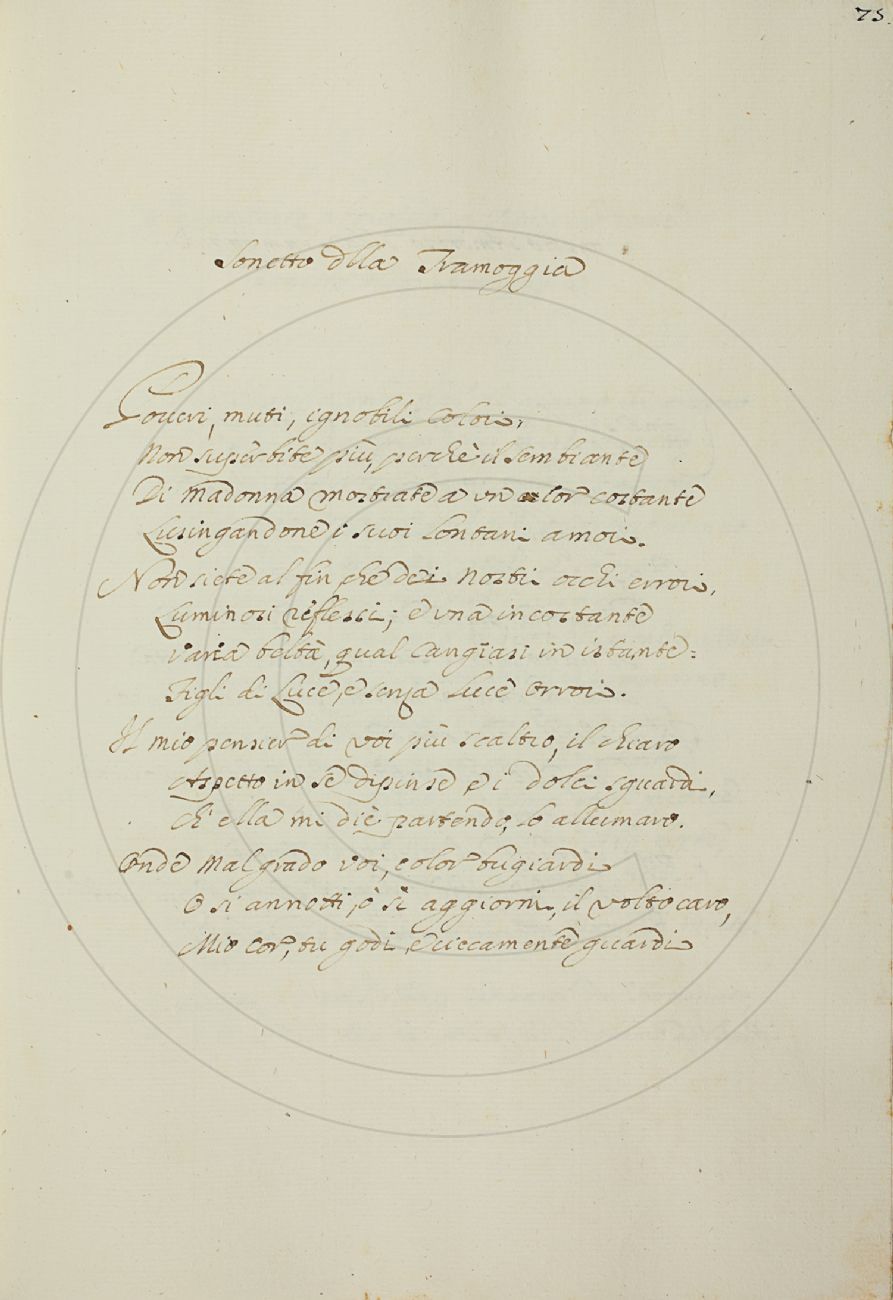 75
Sonetto dlla Tramoggia
Poveri, muti, ignobili colori,
Non superbite più, perchè il sembiante
Di madonna mostrate a un cor costante
Lusingandone i suoi lontani amori.
Non siete al fin che dei nostri occhi errori,
Luminosi riflessi; e una incostante
varia beltà, qual cangiasi in istante:
Figli di Luce, e senza Luce orrori.
Il mio pensier di voi più scaltro, il chiaro
Aspetto in sè dipinse e i dolci sguardi,
Ch' ella mi diè partendo, lo allumaro.
Onde malgrado voi, color bugiardi
O si annotti, ò si aggiorni, il volto caro,
Mio Cor, tu godi, e ciecamente guardi